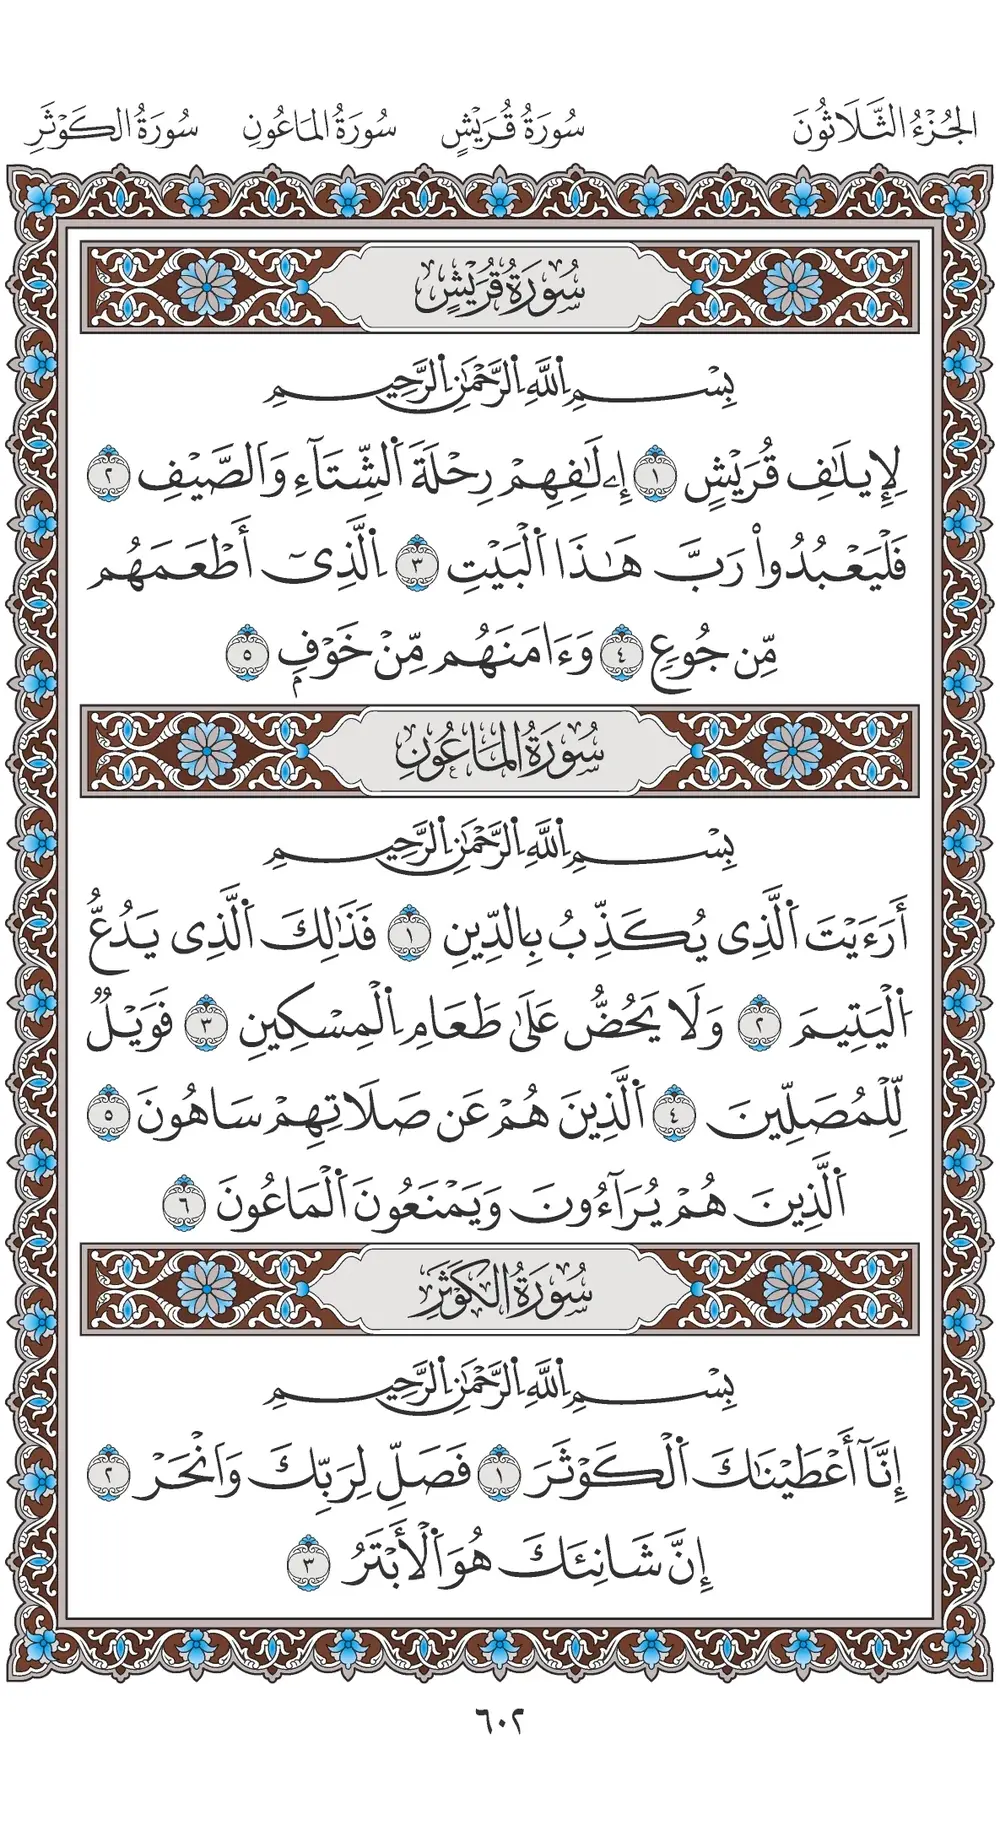 الجُزْءُ الثَّلَاثُونَ سُورَةُ قُرَيْشٍ سُورَةُ المَاعُونِ سُورَةُ الكَوْثَرِ
سُورَةُ قُرَيْشٍ
بِسْمِ اِ۬للَّهِ اِ۬لرَّحْمَٰنِ اِ۬لرَّحِيمِ
لِإِيلَٰفِ قُرَيْشٍ ١ إِۦلَٰفِهِمْ رِحْلَةَ اَ۬لشِّتَآءِ وَالصَّيْفِ ٢
فَلْيَعْبُدُواْ رَبَّ هَٰذَا اَ۬لْبَيْتِ ٣ اِ۬لَّذِىٓ أَطْعَمَهُم
مِّن جُوعٖ ٤ وَءَامَنَهُم مِّنْ خَوْفِۢ ٥
سُورَةُ المَاعُونِ
بِسْمِ اِ۬للَّهِ اِ۬لرَّحْمَٰنِ اِ۬لرَّحِيمِ
أَرَءَيْتَ اَ۬لَّذِى يُكَذِّبُ بِالدِّينِ ١ فَذَٰلِكَ اَ۬لَّذِى يَدُعُّ
اُ۬لْيَتِيمَ ٢ وَلَا يَحُضُّ عَلَىٰ طَعَامِ اِ۬لْمِسْكِينِ ٣ فَوَيْلٌ
لِّلْمُصَلِّينَ ٤ اَ۬لَّذِينَ هُمْ عَن صَلَاتِهِمْ سَاهُونَ ٥
اَ۬لَّذِينَ هُمْ يُرَآءُونَ وَيَمْنَعُونَ اَ۬لْمَاعُونَ ٦
سُورَةُ الكَوْثَرِ
بِسْمِ اِ۬للَّهِ اِ۬لرَّحْمَٰنِ اِ۬لرَّحِيمِ
إِنَّآ أَعْطَيْنَٰكَ اَ۬لْكَوْثَرَ ١ فَصَلِّ لِرَبِّكَ وَانْحَرْ ٢
إِنَّ شَانِئَكَ هُوَ اَ۬لْأَبْتَرُ ٣
٦٠٢